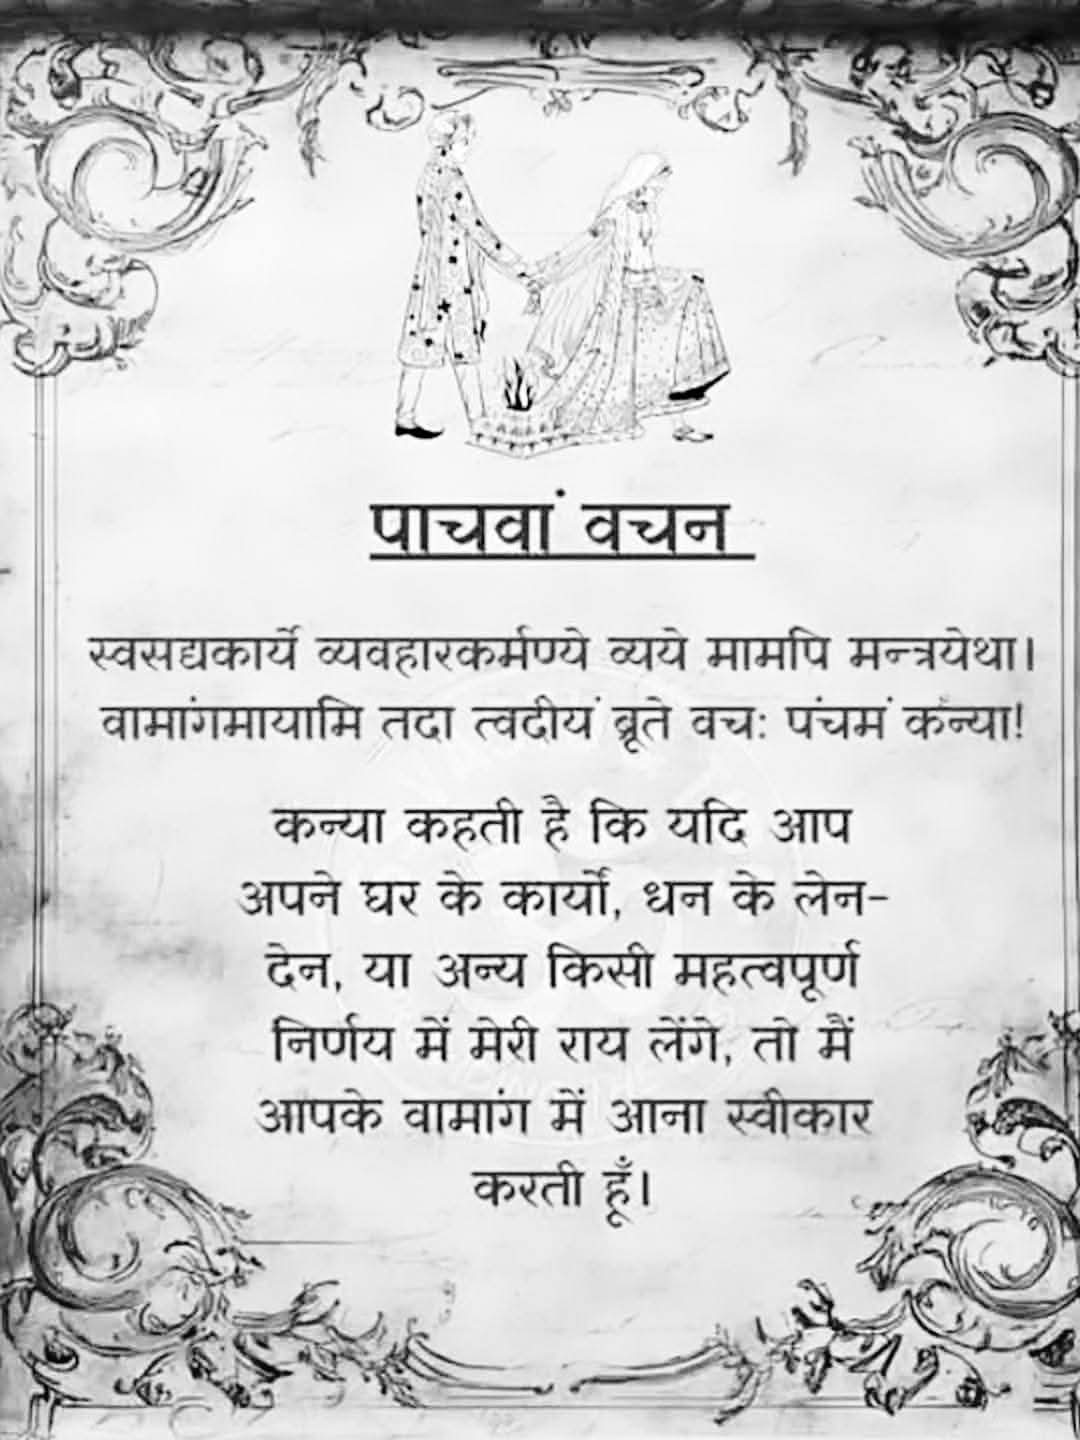 पाचवां वचन
स्वसद्यकार्ये व्यवहारकर्मण्ये व्यये मामपि मन्त्रयेथा।
वामांगमायामि तदा त्वदीयं ब्रूते वचः पंचमं कन्या!
कन्या कहती है कि यदि आप
अपने घर के कार्यों, धन के लेन-
देन, या अन्य किसी महत्वपूर्ण
निर्णय में मेरी राय लेंगे, तो मैं
आपके वामांग में आना स्वीकार
करती हूँ।